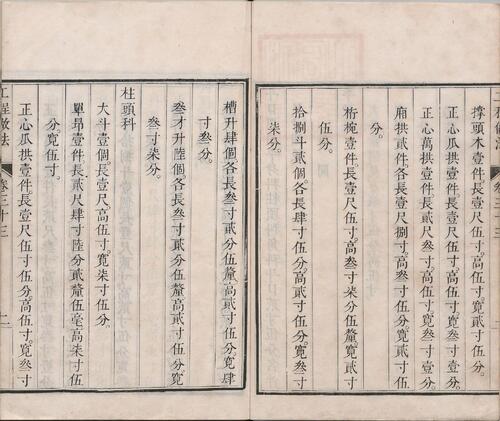 撐頭木壹件長壹尺伍寸伍分高伍寸寬叁寸
正心瓜拱壹件長壹尺伍寸伍分高伍寸寬叁寸壹分
正心萬拱壹件長貳尺叁寸高伍寸寬叁寸壹分
廂拱貳件各長壹尺捌寸高叁寸伍分寬貳寸伍
分
桁椀壹件長壹尺伍寸高叁寸柒分伍釐寬貳寸
伍分
拾捌斗貳個各長肆寸伍分高貳寸伍分寬叁寸
柒分
槽升肆個各長叁寸貳分伍釐高貳寸伍分寬肆
寸叁分
叁才升陸個各長叁寸貳分伍釐高貳寸伍分寬
叁寸柒分
柱頭科
大斗壹個長壹尺高伍寸寬柒寸伍分
單昂壹件長貳尺肆寸陸分貳釐伍毫高柒寸伍
分寬伍寸
正心瓜拱壹件長壹尺伍寸伍分高伍寸寬叁寸
工程做法 卷三十三 二